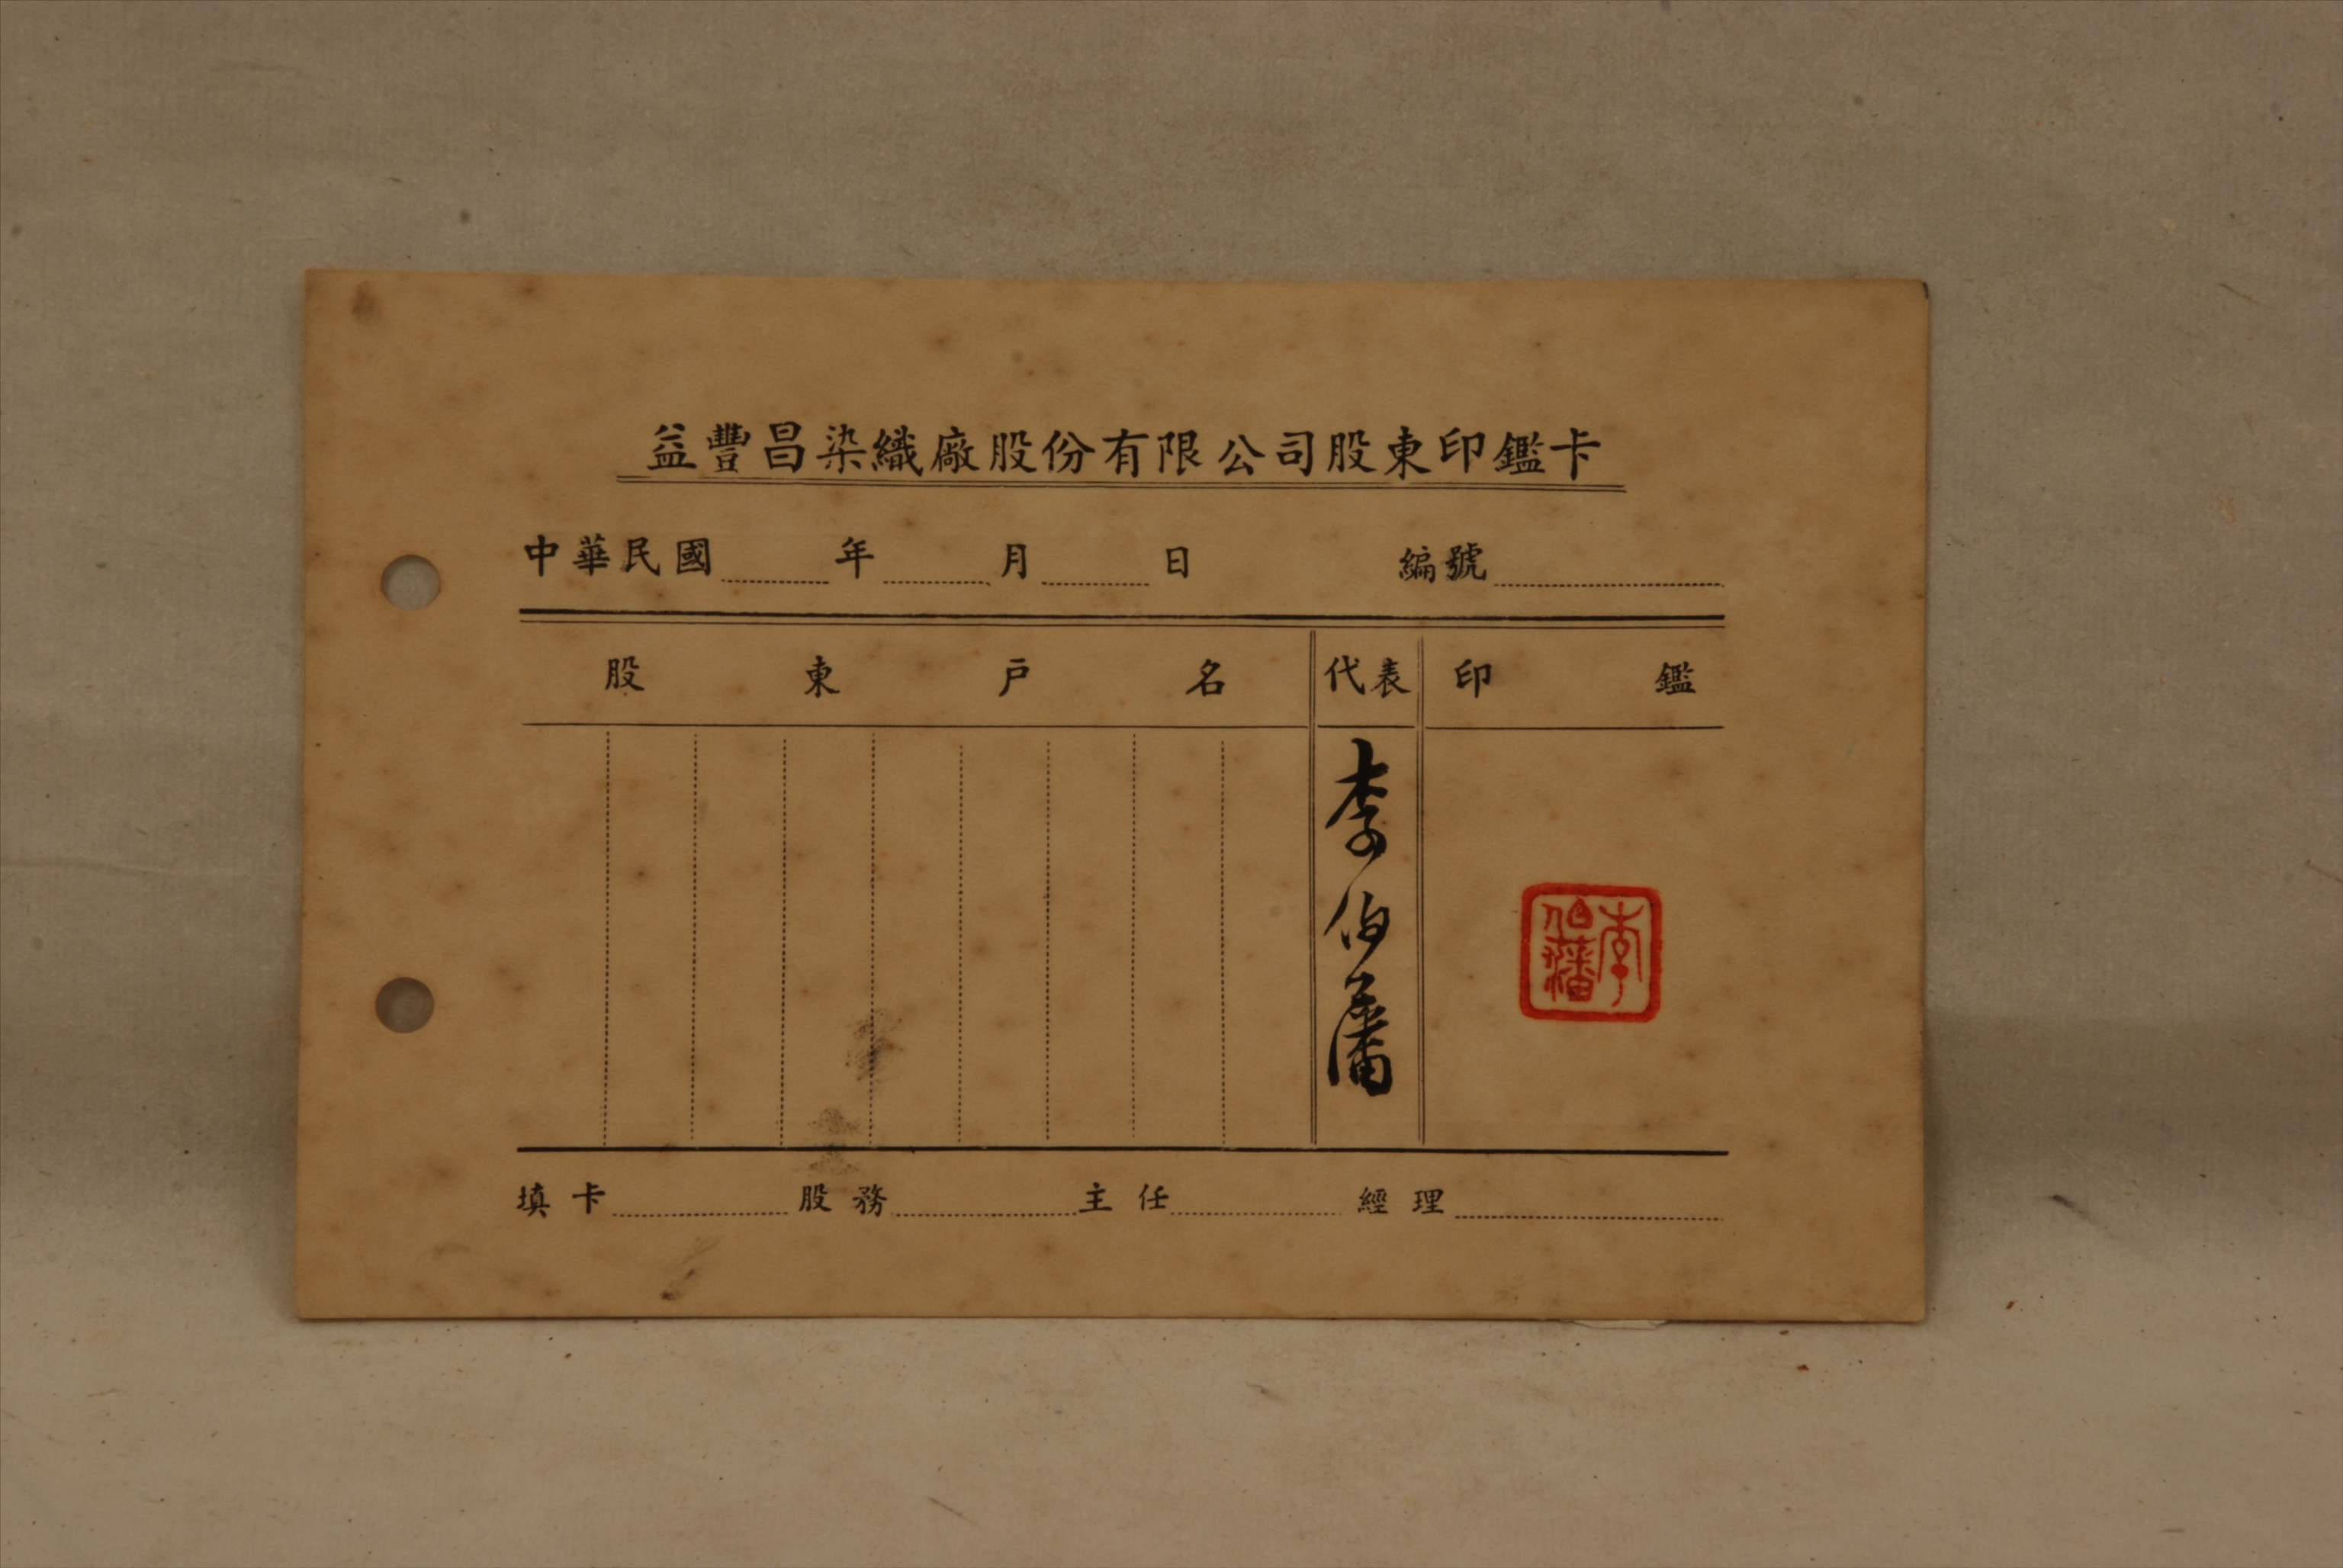 益豐昌染織廠股份有限公司股東印鑑卡
中華民國 年 月 日 編號
股東戶名 代表 印鑑
李伯藩
李伯藩
填卡 股務 主任 經理